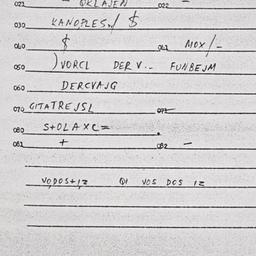 021 — QKLAJEN 022 —
030 KANOPLES./ $
040 $ 042 MOX/-
050 )VORCL DER V.- FUNBEJM
060 DERCVAJG
070 GITATREJSL 072
080 S+OLAXC=
081 + 082 -
VODOS+,Z QI VOS DOS IZ